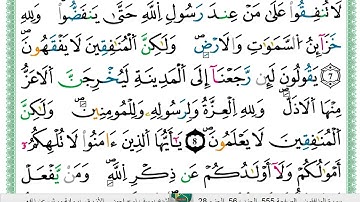 لَا تُنفِقُواْ عَلَىٰ مَنْ عِندَ رَسُولِ اللَّهِ حَتَّىٰ يَنفَضُّواْ وَلِلهِ
خَزَآئِنُ السَّمَٰوَٰتِ وَالَارْضِ وَلَٰكِنَّ الْمُنَٰفِقِينَ لَا يَفْقَهُونَ
٧ يَقُولُونَ لَئِن رَّجَعْنَآ إِلَى الْمَدِينَةِ لَيُخْرِجَنَّ الَاعَزُّ
مِنْهَا الَاذَلَّ وَلِلهِ الْعِزَّةُ وَلِرَسُولِهِ وَلِلْمُومِنِينَ وَلَٰكِنَّ
الْمُنَٰفِقِينَ لَا يَعْلَمُونَ ٨ يَٰٓأَيُّهَا الَّذِينَ ءَامَنُواْ لَا تُلْهِكُمُ
أَمْوَٰلُكُمْ وَلَآ أَوْلَٰدُكُمْ عَن ذِكْرِ اللَّهِ وَمَنْ يَّفْعَلْ